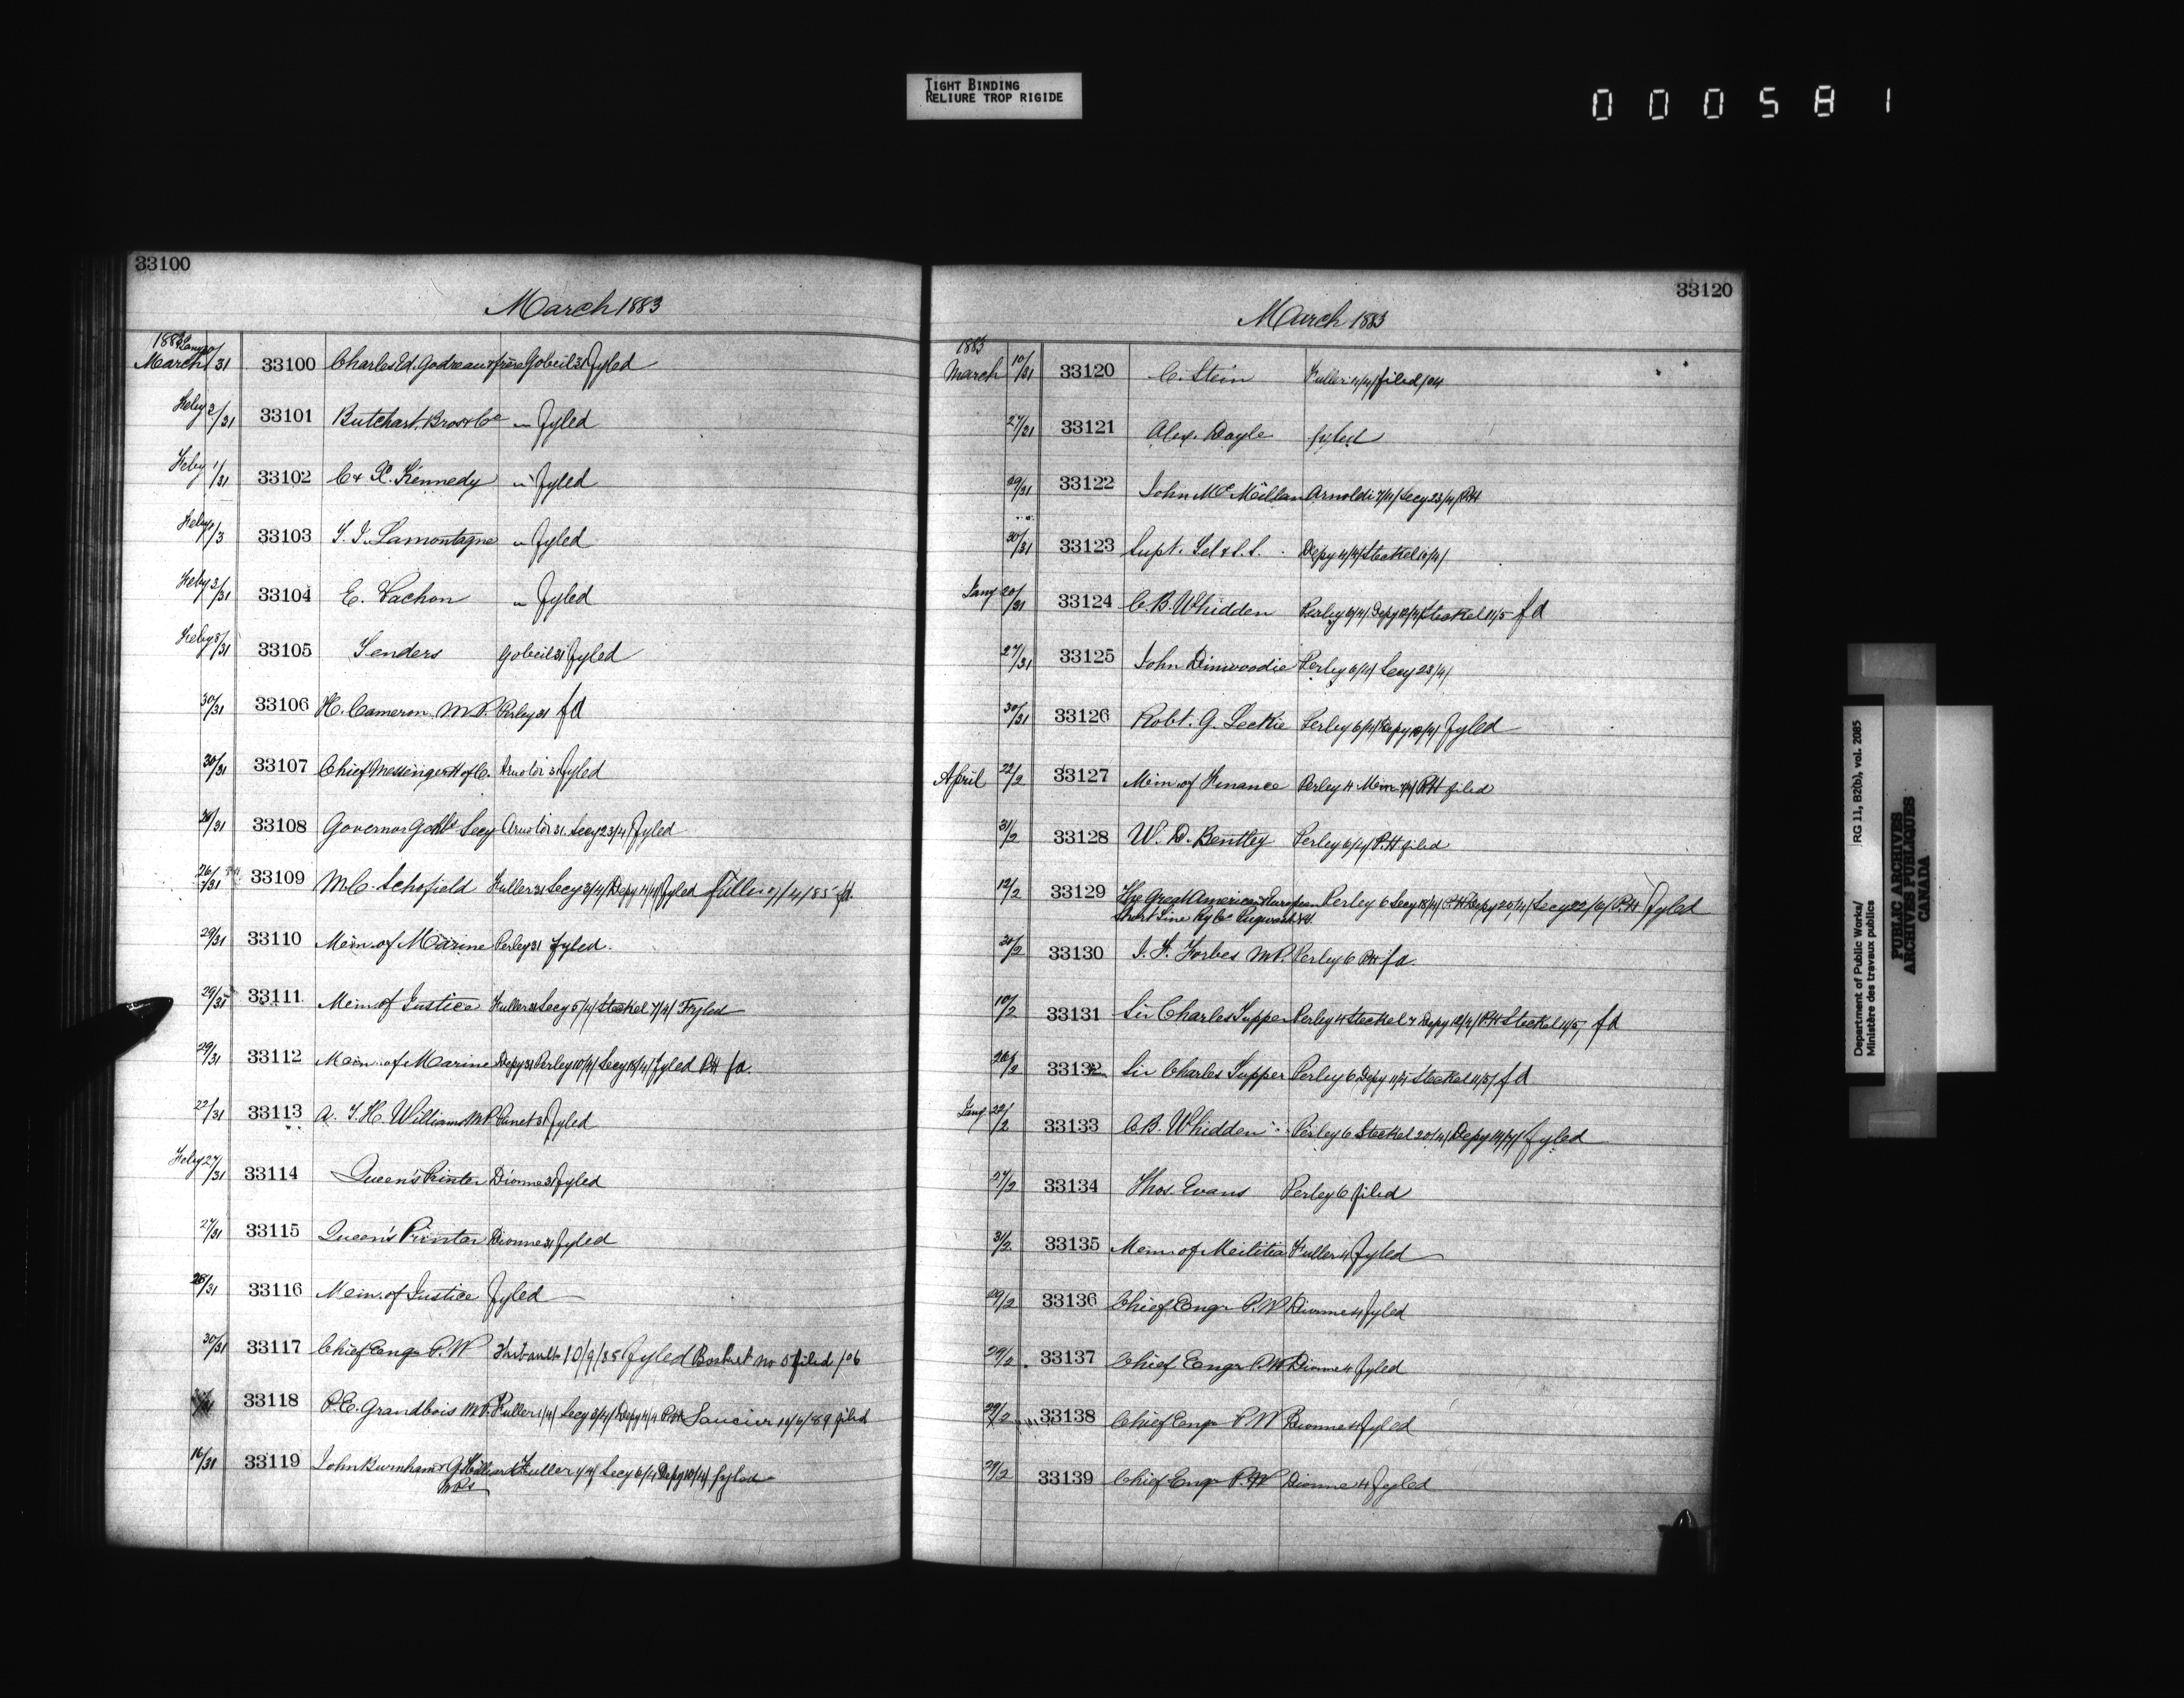 TIGHT BINDING
RELIURE TROP RIGIDE
000581
33100
March 1883
1883 Jany
March /31 33100 Charles Ed. Godreau & frère Gobeil 31 Fyled
Feby 2/31 33101 Butchart, Bros & Co " Fyled
Feby 1/31 33102 C & R. Kennedy " Fyled
Feby /3 33103 Lamontagne " Fyled
Feby 2/31 33104 E. Vachon " Fyled
Feby 8/31 33105 Tenders Gobeil 31 Fyled
30/31 33106 H. Cameron M.P. Perley 31 fd
30/31 33107 Chief Messenger H of C. Arnoldi 31 Fyled
/31 33108 Governor Genl's Secy Arnoldi 31. Secy 23/4/ Fyled
26/31 33109 M.C. Schofield Fuller 31 Secy 3/4/ Depy 14/4/ Fyled Fuller /4/85 fd.
29/31 33110 Min. of Marine Perley 31 Fyled.
29/31 33111 Min. of Justice Fuller 31 Secy 5/4/ Steckel 7/4/ Fyled
29/31 33112 Min. of Marine Depy 31 Perley 10/4/ Secy 18/4/ Fyled PH fd.
22/31 33113 A. T. H. Williams M.P. Panet 31 Fyled
Feby 27/31 33114 Queen's Printer Dionne 31 Fyled
27/31 33115 Queen's Printer Dionne 31 Fyled
28/31 33116 Min. of Justice Fyled
30/31 33117 Chief Engr P.W Thibault 10/9/85 Fyled Basket No 5 filed /06
/31 33118 P.E. Grandbois M.P. Fuller 1/4/ Secy 3/4/ Depy 4/4 P.H Saucier 10/6/89 filed
16/31 33119 John Burnham & G. Hilliard Fuller 4/4/ Secy 6/4 Depy 10/4/ Fyled
M.P.s
33120
March 1883
1883
March 10/31 33120 C. Stein Fuller 4/4/ filed /04
27/31 33121 Alex. Doyle fyled
29/31 33122 John McMillan Arnoldi 7/4/ Secy 23/4/ P.H
30/31 33123 Supt. Tel & S.S. Depy 4/4/ Steckel 10/4/
Jany 20/31 33124 C.B. Whidden Perley 6/4/ Depy 12/4/ Steckel 11/5 fd
27/31 33125 John Dinwoodie Perley 6/4/ Secy 23/4/
30/31 33126 Robt. G. Leckie Perley 6/4/ Depy 10/4/ Fyled
April 22/2 33127 Min. of Finance Perley 4 Min. /4/ P.H filed
31/2 33128 W. D. Bentley Perley 6/4/ P.H filed
12/2 33129 The Great American & European Perley 6 Secy 18/4/ P.H Depy 20/4/ Secy 22/6/ P.H Fyled
Short Line Ry Co Pugwash N.S.
30/2 33130 J. F. Forbes M.P. Perley 6 P.H fd.
10/2 33131 Sir Charles Tupper Perley 4 Steckel 7 Depy 12/4/ P.H Steckel 11/5/ fd
26/2 33132 Sir Charles Tupper Perley 6 Depy 11/4/ Steckel 11/5/ fd
Jany 22/2 33133 C.B. Whidden Perley 6 Steckel 20/4/ Depy 14/7/ Fyled
27/2 33134 Thos. Evans Perley 6 filed
31/2 33135 Min. of Militia Fuller 4 Fyled
29/2 33136 Chief Engr P.W Dionne 4 Fyled
29/2 33137 Chief Engr P.W Dionne 4 Fyled
29/2 33138 Chief Engr P.W Dionne 4 Fyled
29/2 33139 Chief Engr P.W Dionne 4 Fyled
Department of Public Works/ RG 11, B2(b), vol. 2085
Ministère des travaux publics
PUBLIC ARCHIVES
ARCHIVES PUBLIQUES
CANADA